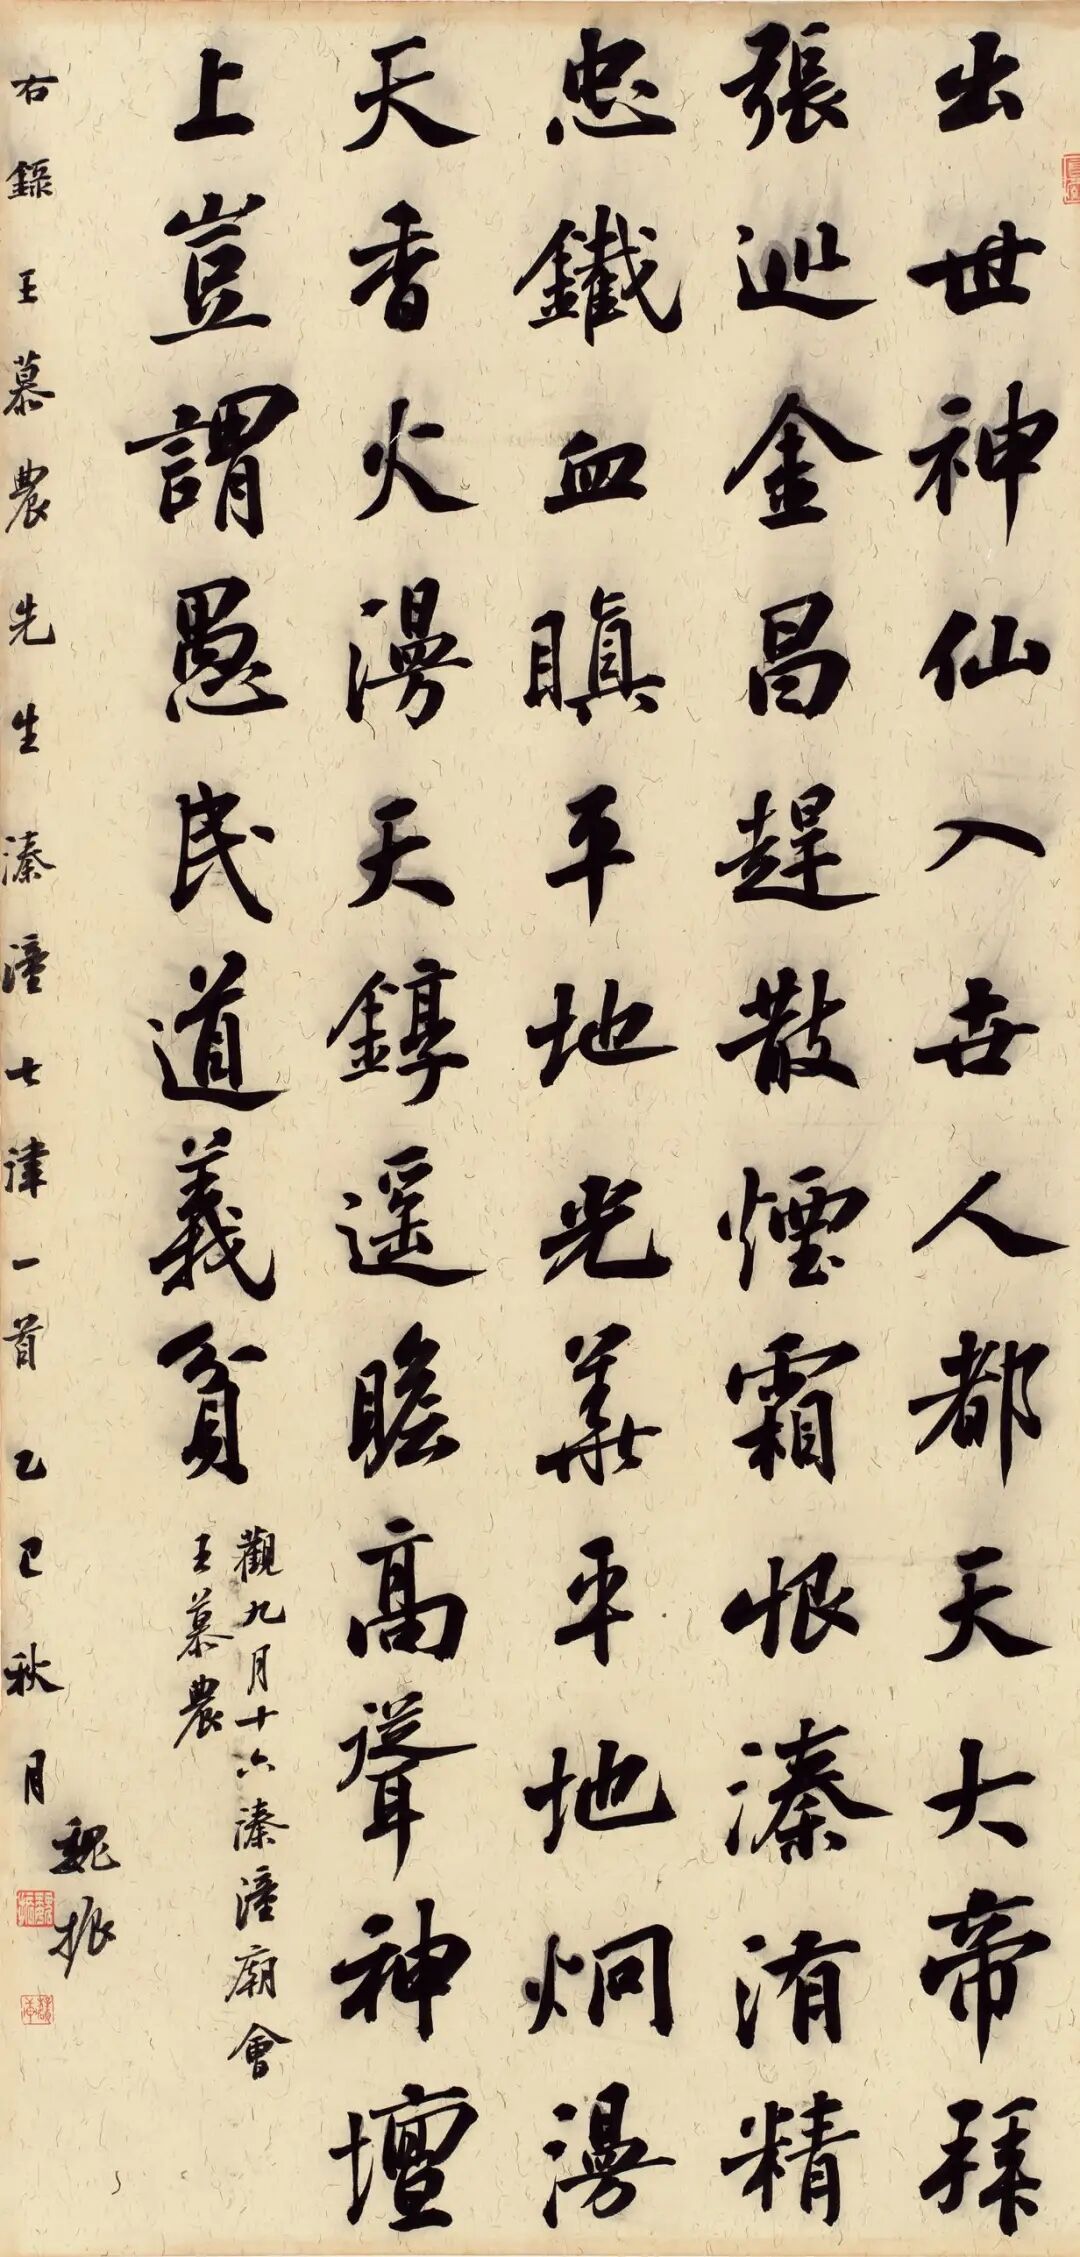 出世神仙入世人都天大帝拜
張巡金昌趕散煙霜恨溱洧精
忠鐵血瞋平地光華平地炯漫
天香火漫天錞遥瞻高聳神壇
上豈謂愚民道義貧
觀九月十六溱潼廟會
王慕農
右錄王慕農先生溱潼七律一首乙巳秋月
魏振